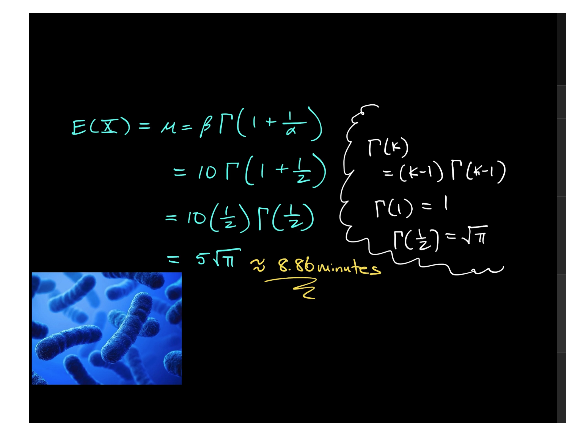 E(X) = μ = β Γ(1 + 1/α)
= 10 Γ(1 + 1/2)
= 10(1/2) Γ(1/2)
= 5√π ≈ 8.86 minutes
Γ(k)
= (k-1) Γ(k-1)
Γ(1) = 1
Γ(1/2) = √π